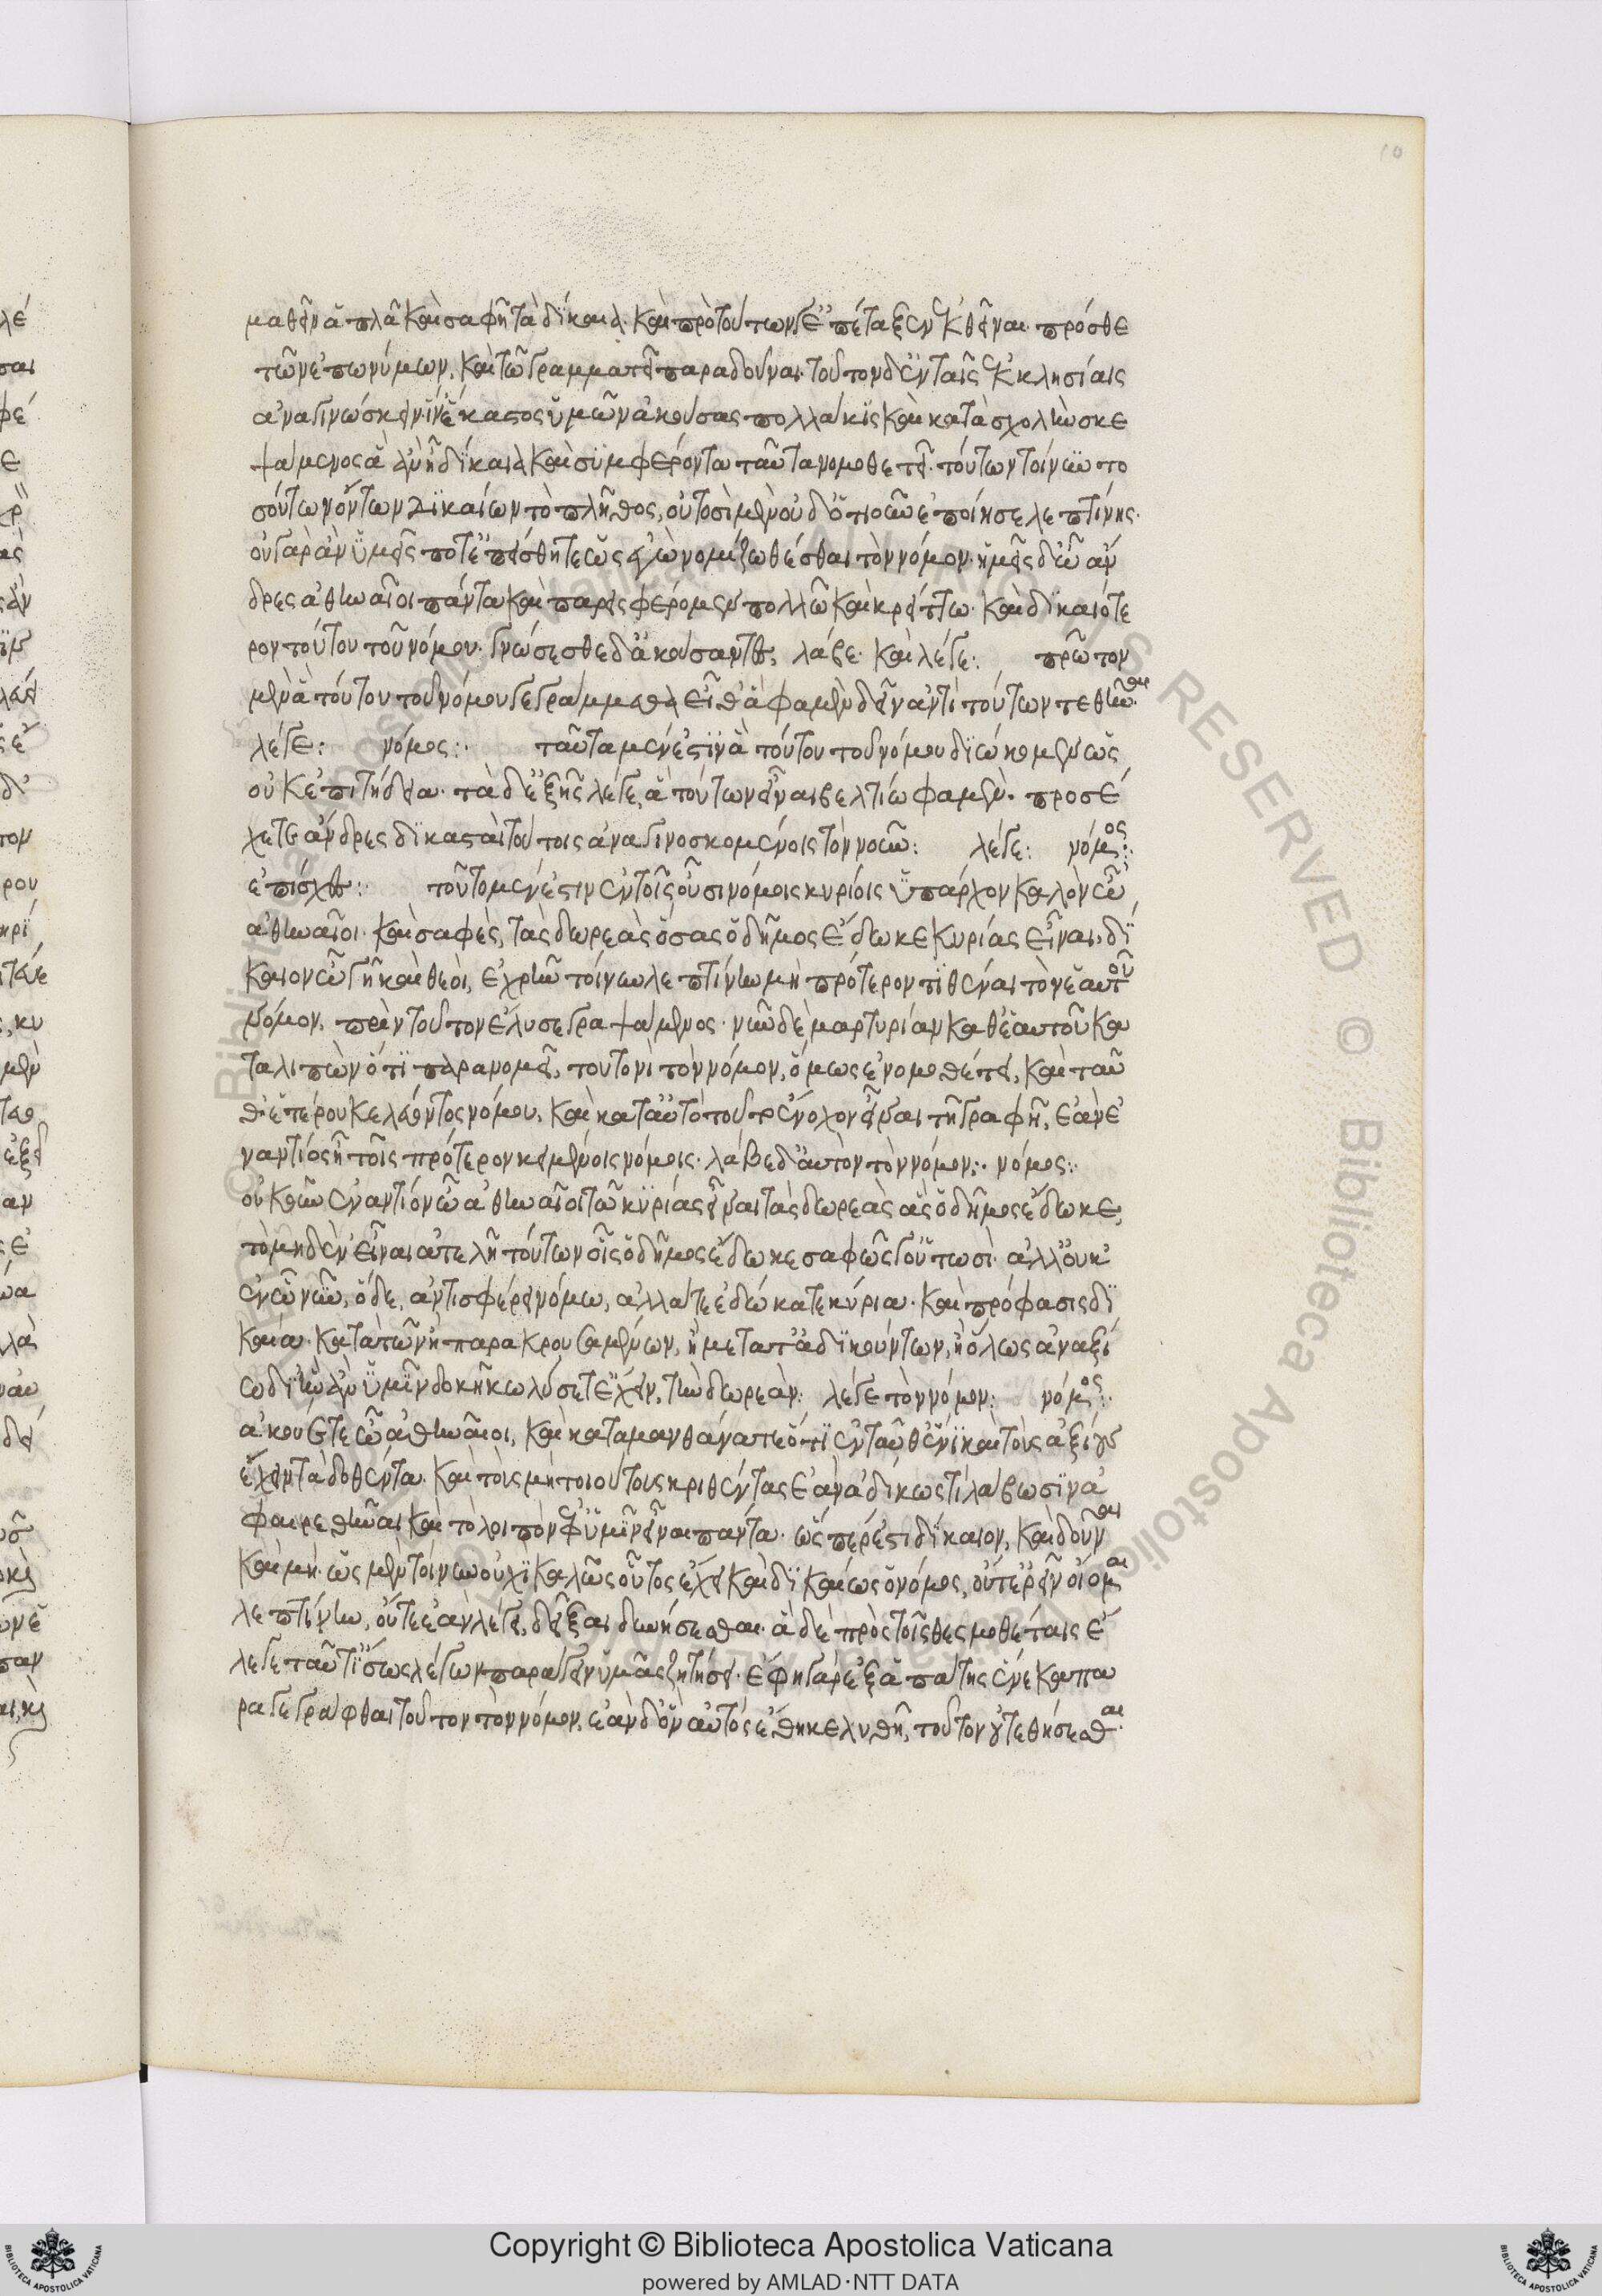 μαθεῖν ἁπλᾶ καὶ σαφῆ τὰ δίκαια. καὶ πρὸ τούτων γ' ἐπέταξεν ἐκθεῖναι πρόσθε
τῶν ἐπωνύμων, καὶ τῶ γραμματεῖ παραδοῦναι. τοῦτον δ' ἐν ταῖς ἐκκλησίαις
ἀναγινώσκειν ἵν' ἕκαστος ὑμῶν ἀκούσας πολλάκις καὶ κατὰ σχολὴν σκε
ψάμενος ἃ ἂν ᾖ δίκαια καὶ συμφέροντα ταῦτα νομοθετῆ. τούτων τοίνυν το
σούτων ὄντων δικαίων τὸ πλῆθος, οὑτοσὶ μὲν οὐδ' ὁτιοῦν ἐποίησε λεπτίνης.
οὐ γὰρ ἂν ὑμεῖς ποτ' ἐπείσθητε ὡς ἐγὼ νομίζω θέσθαι τὸν νόμον. ἡμεῖς δ' ὦ ἄν
δρες ἀθηναῖοι πάντα καὶ παρεισφέρομεν πολλῶ καὶ κρείττω καὶ δικαιότε
ρον τούτου τοῦ νόμου. γνώσεσθε δ' ἀκούσαντες, λάβε καὶ λέγε: πρῶτον
μὲν ἃ τούτου τοῦ νόμου γεγράμμεθα εἶθ' ἅ φαμεν δεῖν ἀντὶ τούτων τεθῆναι.
λέγε: νόμος: ταῦτα μέν ἐστιν ἃ τούτου τοῦ νόμου διώκομεν ὡς
οὐκ ἐπιτήδεια. τὰ δ' ἑξῆς λέγε, ἃ τούτων εἶναι βελτίω φαμέν. προσέ
χετε ἄνδρες δικασταὶ τούτοις ἀναγινοσκομένοις τὸν νοῦν: λέγε: νόμος:
ἐπίσχες: τοῦτο μέν ἐστιν ἐν τοῖς οὖσι νόμοις κυρίοις ὑπάρχον καλὸν ὦ
ἀθηναῖοι καὶ σαφὲς, τὰς δωρεὰς ὅσας ὁ δῆμος ἔδωκε κυρίας εἶναι. δί
καιον ὦ γῆ καὶ θεοὶ, ἐχρῆν τοίνυν λεπτίνην μὴ πρότερον τιθέναι τὸν ἑαυτοῦ
νόμον, πρὶν τοῦτον ἔλυσε γραψάμενος. νῦν δὲ μαρτυρίαν καθ' ἑαυτοῦ κα
ταλιπὼν ὅτι παρανομεῖ, τουτονὶ τὸν νόμον, ὅμως ἐνομοθέτει, καὶ ταῦ
θ' ἑτέρου κελεύοντος νόμου, καὶ κατ' αὐτὸ τοῦτ' ἔνοχον εἶναι τῆ γραφῆ, ἐὰν ἐ
ναντίος ᾖ τοῖς πρότερον κειμένοις νόμοις. λάβε δ' αὐτὸν τὸν νόμον: νόμος:
οὐκοῦν ἐναντίον ὦ ἀθηναῖοι τῶ κυρίας εἶναι τὰς δωρεὰς ἃς ὁ δῆμος ἔδωκε,
τὸ μηδέν' εἶναι ἀτελῆ τούτων οἷς ὁ δῆμος ἔδωκε σαφῶς γ' οὕτωσὶ. ἀλλ' οὐκ
ἐν ὧ νῦν, ὅδε, ἀντισφέρει νόμω, ἀλλ' ἅ τε ἐδώκατε κύρια. καὶ πρόφασις δι
καία κατὰ τῶν ἢ παρακρουσαμένων, ἢ μετὰ ταῦτ' ἀδικούντων, ἢ ὅλως ἀναξί
ων δι' ἣν ἂν ὑμῖν δοκῆ κωλύσετ' ἔχειν, τὴν δωρεάν: λέγε τὸν νόμον: νόμος:
ἀκούετε ὦ ἀθηναῖοι, καὶ καταμανθάνετε ὅτι ἐνταῦθ' ἔνι καὶ τοὺς ἀξίους
ἔχειν τὰ δοθέντα. καὶ τοὺς μὴ τοιούτους κριθέντας ἐὰν ἀδίκως τι λάβωσιν ἀ
φαιρεθῆναι καὶ τὸ λοιπὸν ἐφ' ὑμῖν εἶναι πάντα. ὥσπέρ ἐστι δίκαιον, καὶ δοῦναι
καὶ μή. ὡς μὲν τοίνυν οὐχὶ καλῶς οὗτος ἔχει καὶ δικαίως ὁ νόμος, οὔτ' ἐρεῖν οἴομαι
λεπτίνην, οὔτε ἐὰν λέγει, δεῖξαι δυνήσεσθαι. ἃ δὲ πρὸς τοῖς θεσμοθέταις ἔ
λεγε ταῦτ' ἴσως λέγων παράγειν ὑμᾶς ζητήσει. ἔφη γὰρ ἐξ ἀπάτης ἕνεκα πα
ραγεγράφθαι τοῦτον τὸν νόμον, ἐὰν δ' ὃν αὐτὸς ἔθηκε λυθῆ, τοῦτον οὐ τεθήσεσθαι.